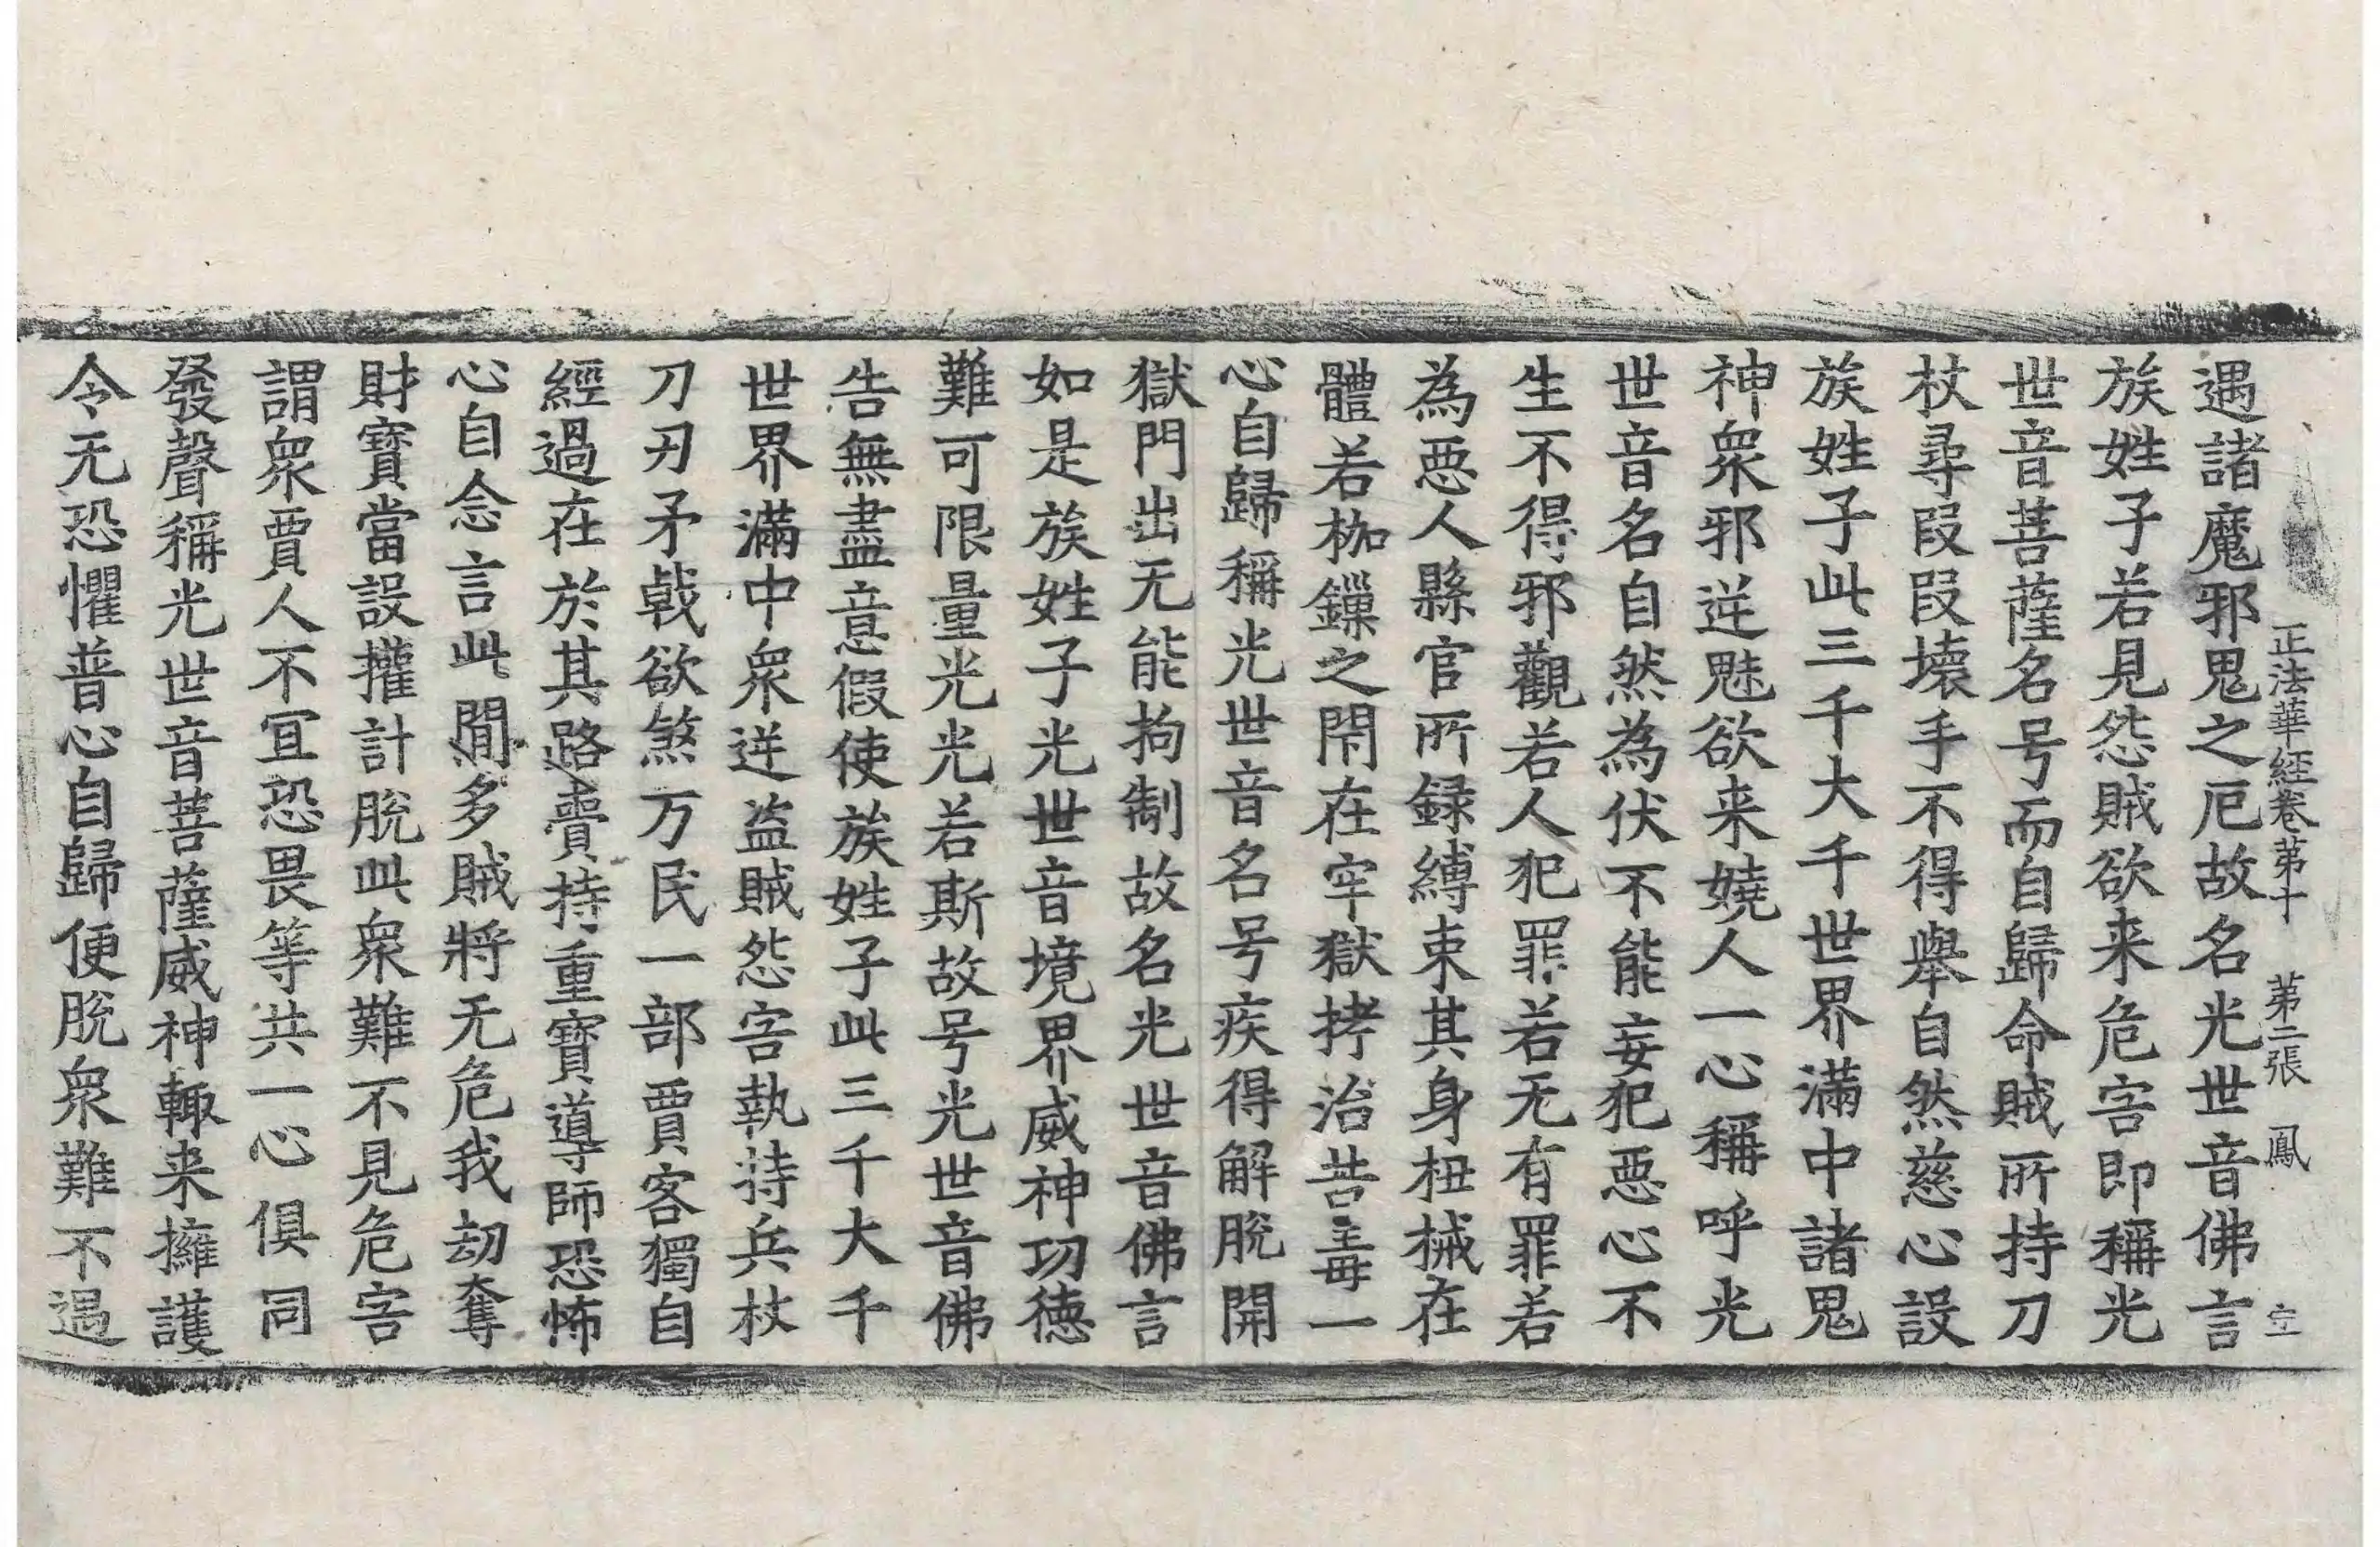 正法華經卷第十 第二張 鳳
遇諸魔邪鬼之厄故名光世音佛言
族姓子若見怨賊欲来危害即稱光
世音菩薩名号而自歸命賊所持刀
杖尋段段壞手不得舉自然慈心設
族姓子此三千大千世界滿中諸鬼
神衆邪逆魅欲来嬈人一心稱呼光
世音名自然為伏不能妄犯惡心不
生不得邪觀若人犯罪若无有罪若
為惡人縣官所録縛束其身杻械在
體若枷鏁之閇在牢獄拷治苦毒一
心自歸稱光世音名号疾得解脫開
獄門出无能拘制故名光世音佛言
如是族姓子光世音境界威神功德
難可限量光光若斯故号光世音佛
告無盡意假使族姓子此三千大千
世界滿中衆逆盗賊怨害執持兵杖
刀刃矛戟欲煞万民一部賈客獨自
經過在於其路賷持重寶導師恐怖
心自念言此閒多賊將无危我劫奪
財寶當設權計脫此衆難不見危害
謂衆賈人不冝恐畏等共一心俱同
發聲稱光世音菩薩威神輙来擁護
令无恐懼普心自歸便脫衆難不遇